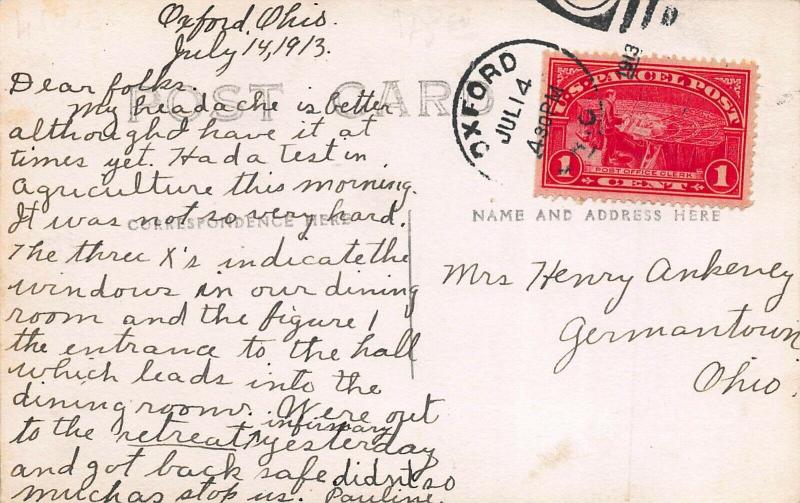 Oxford, Ohio.
July 14, 1913.
Dear folks.
My headache is better
although I have it at
times yet. Had a test in
agriculture this morning.
It was not so very hard.
The three X's indicate the
windows in our dining
room and the figure 1
the entrance to the hall
which leads into the
dining room. Were out
to the retreat, infirmary yesterday
and got back safe didn't so
much as stop us. Pauline.
POST CARD
CORRESPONDENCE HERE
NAME AND ADDRESS HERE
OXFORD
JUL 14
4 30 PM
1913
U.S. PARCEL POST
POST OFFICE CLERK
1 CENT 1
Mrs Henry Ankeney
Germantown
Ohio.